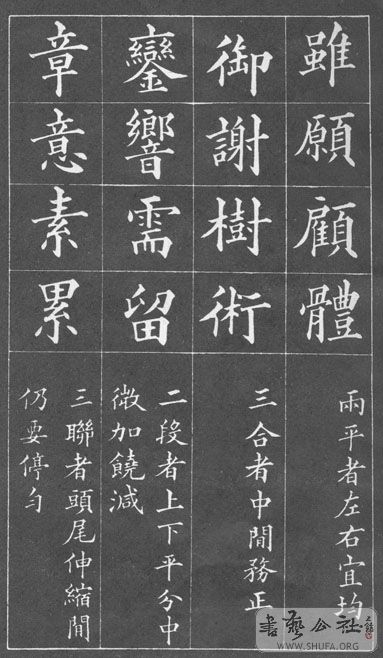 雖願顧體
兩平者左右宜均
御謝樹術
三合者中間務正
鑾響需留
二段者上下平分中
微加饒減
章意素累
三聯者頭尾伸縮間
仍要停勻
書藝公社
WWW.SHUFA.ORG